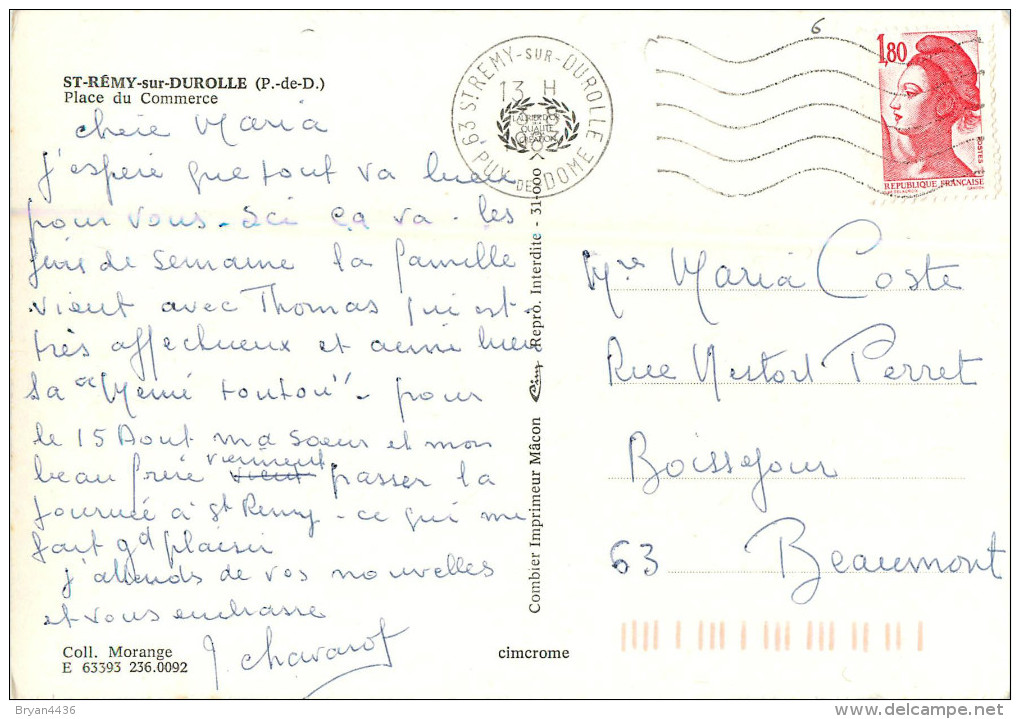 ST-RÉMY-sur-DUROLLE (P.-de-D.)
Place du Commerce
chère Maria
J'espère que tout va bien
pour vous. Ici ça va - les
fins de semaine la famille
vient avec Thomas qui est
très affectueux et aime bien
sa "Mémé toutou" - pour
le 15 Aout ma sœur et mon
beau frère viennent passer la
journée à St Remy - ce qui me
fait gd plaisir
j'attends de vos nouvelles
et vous embrasse
J chavarot
Coll. Morange
E 63393 236.0092
cimcrome
Combier Imprimeur Mâcon Cim Repro. Interdite - 31-0000
63 ST REMY-SUR-DUROLLE
PUY DE DOME
13 H
6
1,80
POSTES
REPUBLIQUE FRANÇAISE
Mme Maria Coste
Rue Nestor Perret
Boisséjour
63 Beaumont
Bryan4436
delcampe.net